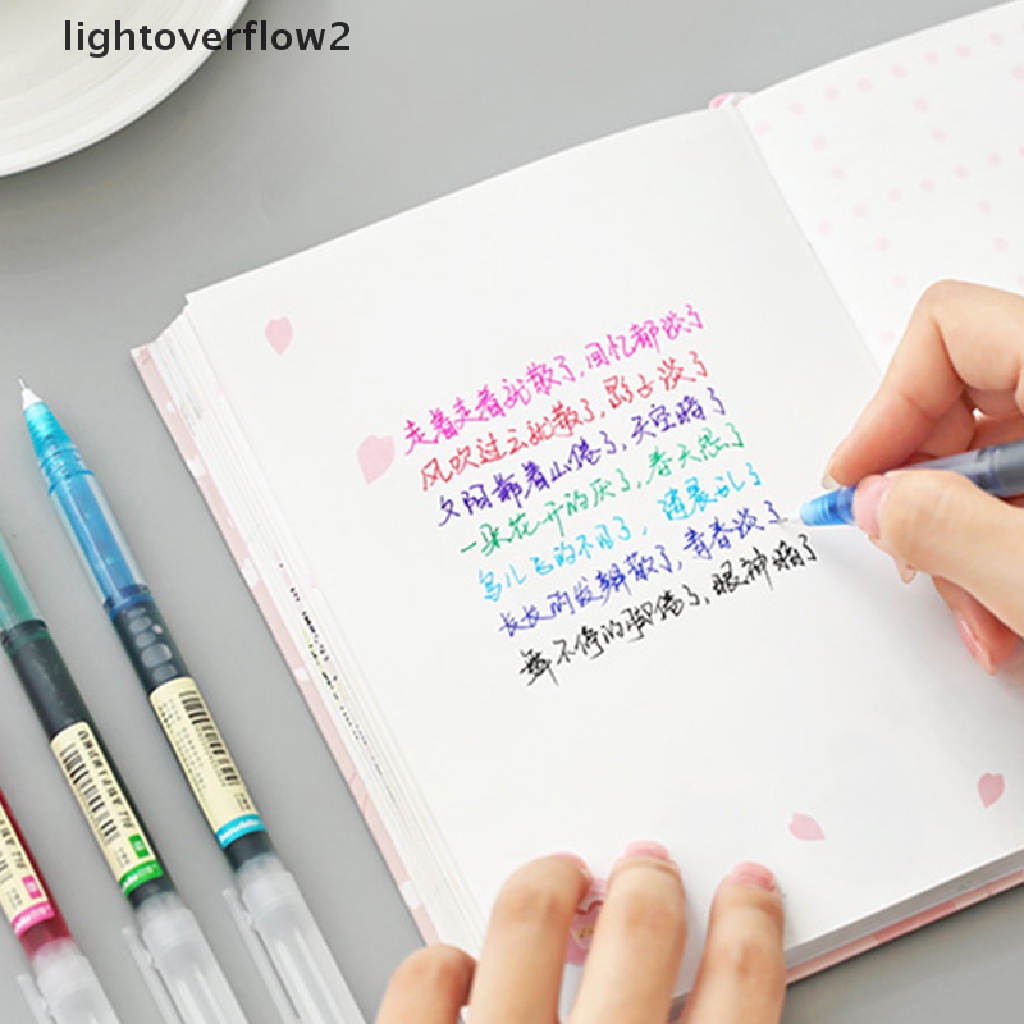 lightoverflow2
走着走着就散了,回忆都淡了
风吹过云就散了,影子淡了
夕阳靠着山倦了,天空暗了
一朵花开的厌了,春天怨了
鸟儿飞的不见了,清晨乱了
长长的发辫散了,青春淡了
舞不停的脚倦了,眼神暗了